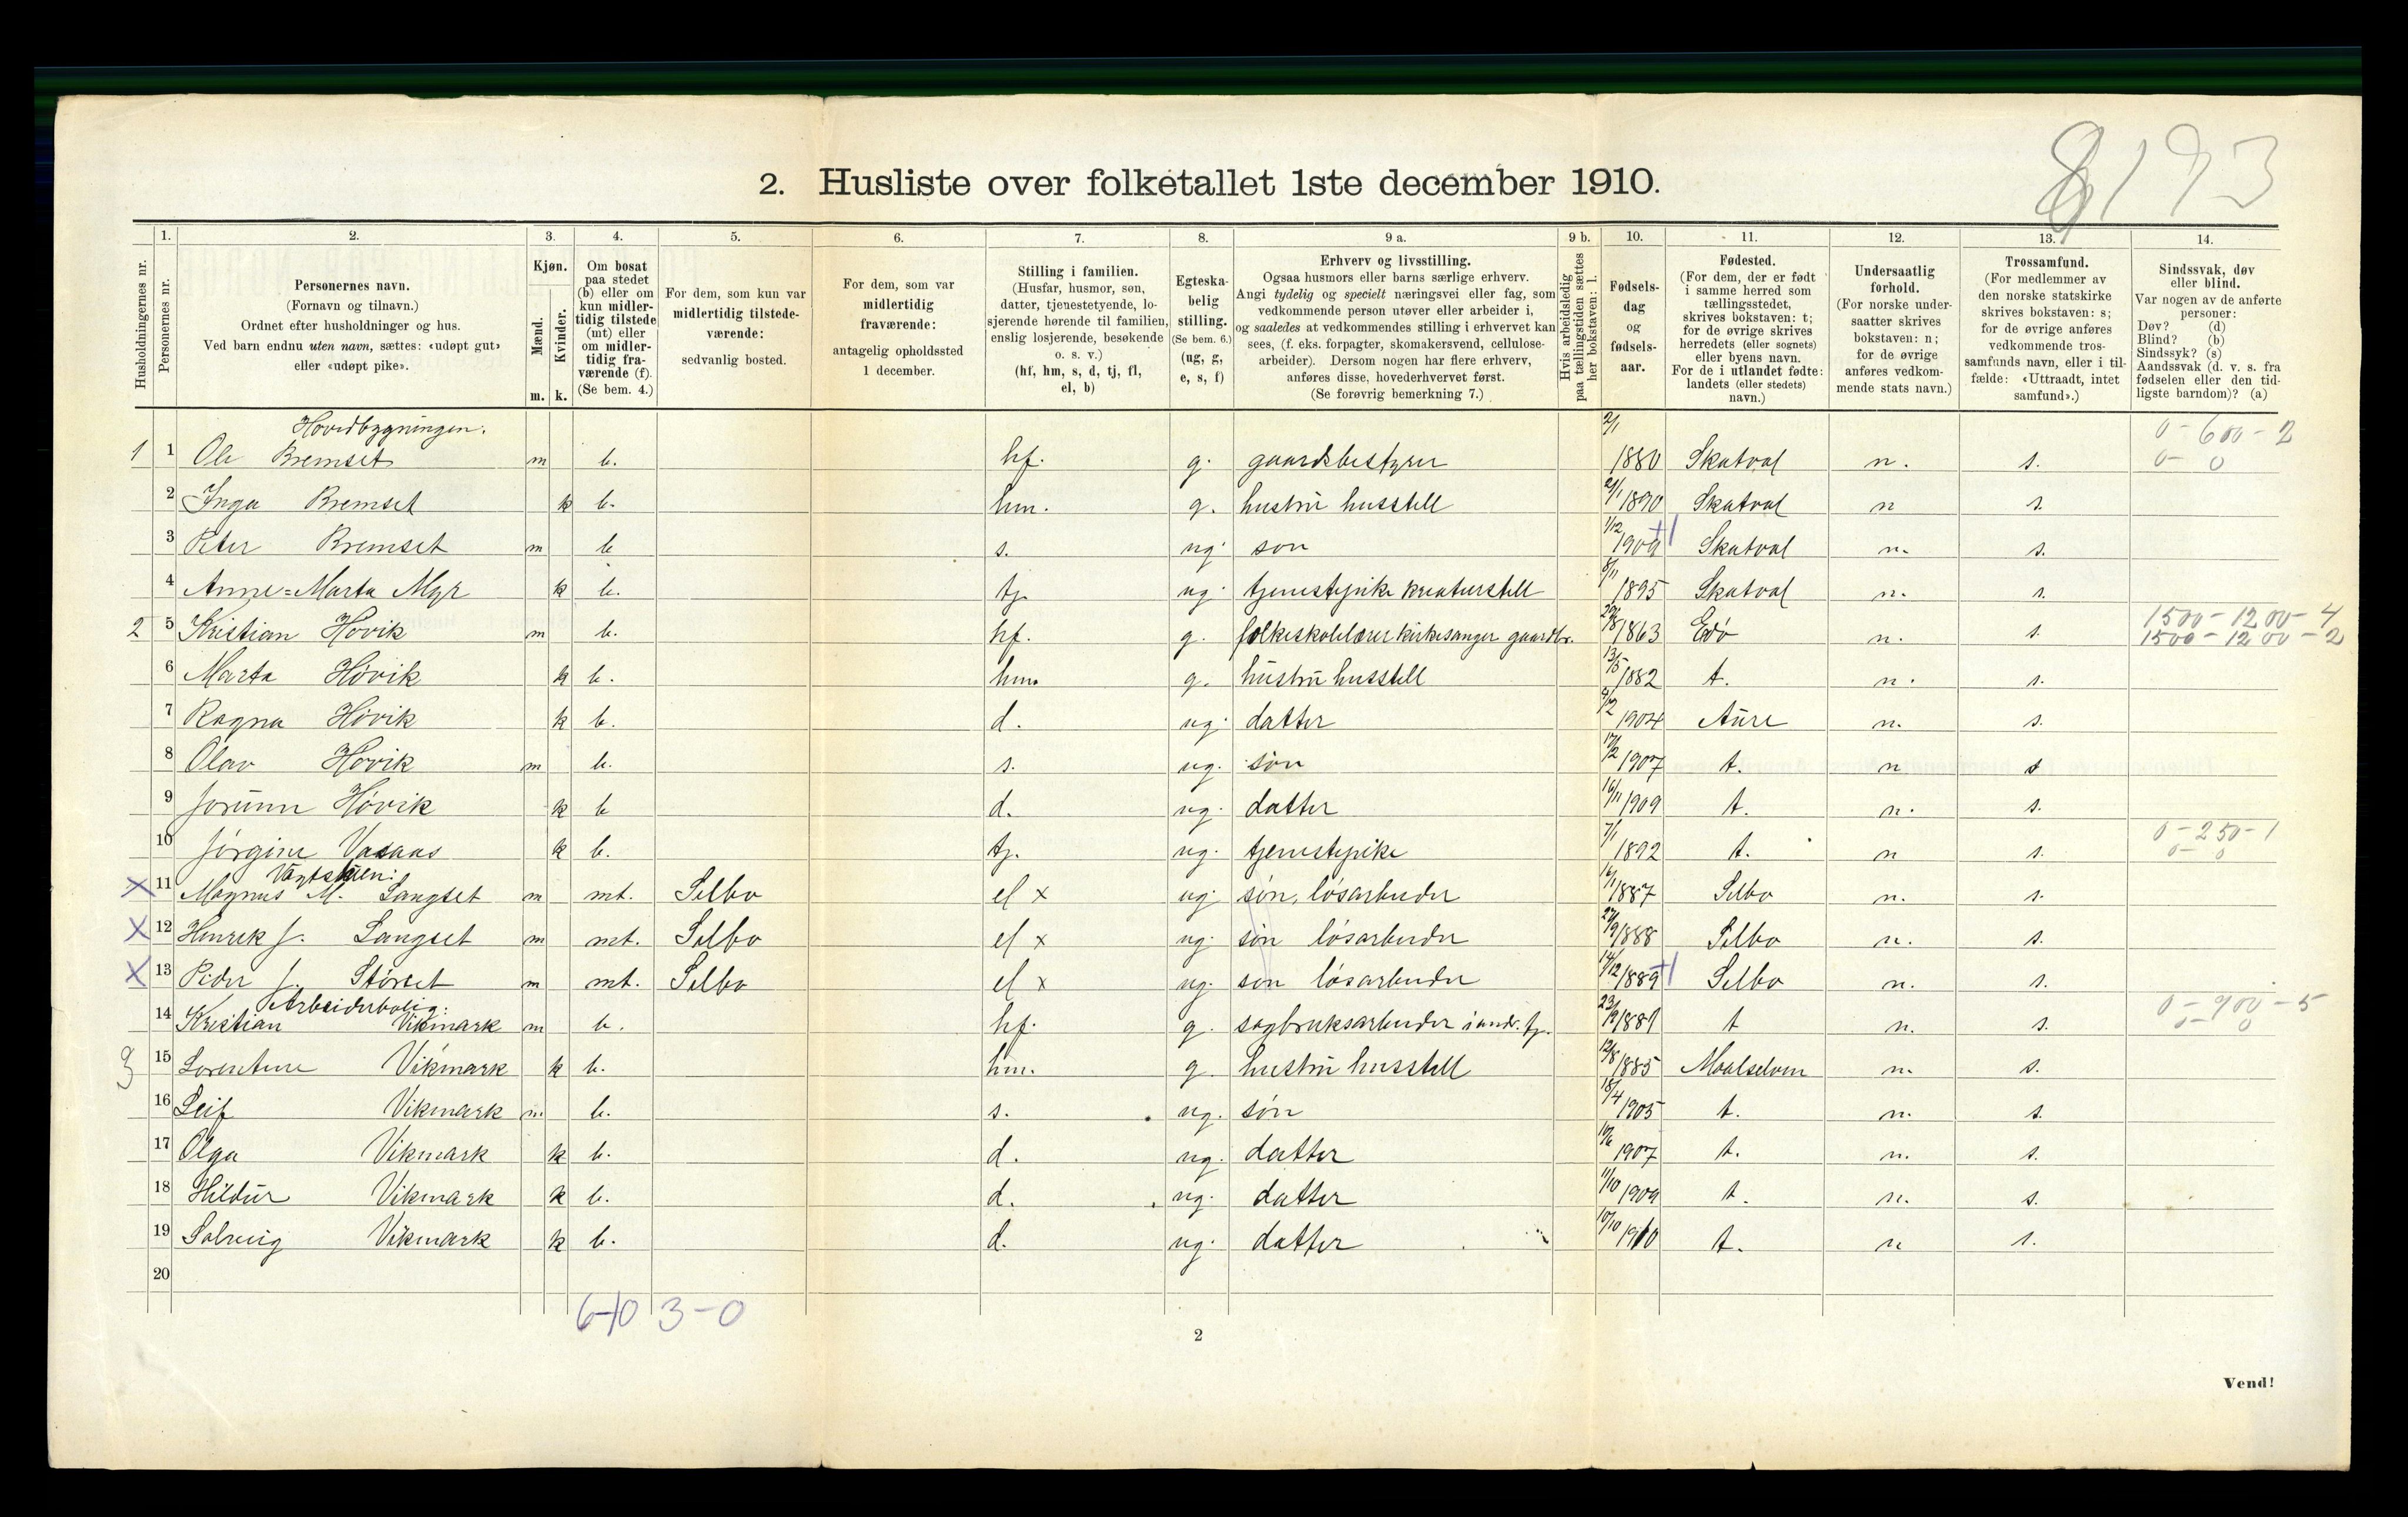 2. Husliste over folketallet 1ste december 1910.
1. 2. 3. 4. 5. 6. 7. 8. 9 a. 9 b. 10. 11. 12. 13. 14.
Husholdningernes nr.
Personernes nr.
Personernes navn.
(Fornavn og tilnavn.)
Ordnet efter husholdninger og hus.
Ved barn endnu uten navn, sættes: «udøpt gut»
eller «udøpt pike».
Kjøn.
Mænd.
Kvinder.
m. k.
Om bosat
paa stedet
(b) eller om
kun midler-
tidig tilstede
(mt) eller
om midler-
tidig fra-
værende (f).
(Se bem. 4.)
For dem, som kun var
midlertidig tilstede-
værende:
sedvanlig bosted.
For dem, som var
midlertidig
fraværende:
antagelig opholdssted
1 december.
Stilling i familien.
(Husfar, husmor, søn,
datter, tjenestetyende, lo-
sjerende hørende til familien,
enslig losjerende, besøkende
o. s. v.)
(hf, hm, s, d, tj, fl,
el, b)
Egteska-
belig
stilling.
(Se bem. 6.)
(ug, g,
e, s, f)
Erhverv og livsstilling.
Ogsaa husmors eller barns særlige erhverv.
Angi tydelig og specielt næringsvei eller fag, som
vedkommende person utøver eller arbeider i,
og saaledes at vedkommendes stilling i erhvervet kan
sees, (f. eks. forpagter, skomakersvend, cellulose-
arbeider). Dersom nogen har flere erhverv,
anføres disse, hovederhvervet først.
(Se forøvrig bemerkning 7.)
Hvis arbeidsledig
paa tællingstiden sættes
her bokstaven: l.
Fødsels-
dag
og
fødsels-
aar.
Fødested.
(For dem, der er født
i samme herred som
tællingsstedet,
skrives bokstaven: t;
for de øvrige skrives
herredets (eller sognets)
eller byens navn.
For de i utlandet fødte:
landets (eller stedets)
navn.)
Undersaatlig
forhold.
(For norske under-
saatter skrives
bokstaven: n;
for de øvrige
anføres vedkom-
mende stats navn.)
Trossamfund.
(For medlemmer av
den norske statskirke
skrives bokstaven: s;
for de øvrige anføres
vedkommende tros-
samfunds navn, eller i til-
fælde: «Uttraadt, intet
samfund».)
Sindssvak, døv
eller blind.
Var nogen av de anførte
personer:
Døv? (d)
Blind? (b)
Sindssyk? (s)
Aandssvak (d. v. s. fra
fødselen eller den tid-
ligste barndom)? (a)
Hovedbygningen.
0-600-2
1 1 Ole Bremset m b. hf. g. gaardsbestyrer 2/1 1880 Skatval n. s. 0- 0
2 Inga Bremset k b. hm. g. hustrü husstell 2/1 1890 Skatval n s.
3 Peter Bremset m b s. ug. søn 1/12 1909 +1 Skatval n. s.
4 Anne=Marta Myr k b. tj. ug. tjenestepike kreaturstell 8/11 1895 Skatval n. s.
1500-1200-4
2 5 Kristian Hövik m b. hf. g. folkeskolelærer kirkesanger gaardbr. 1863 Edö n. s. 1500-1200-2
6 Marta Hövik k b. hm. g. hüstrü husstell 13/5 1882 t. n. s.
7 Ragna Hövik k b. d. ug. datter 1904 Aüre n. s.
8 Olav Hövik m b. s. ug. sön 17/2 1907 t. n s
9 Jorünn Hövik k b d. ug. datter 16/11 1909 t. n. s.
0-250-1
10 Jörgine Vasaas k b. tj. ug. tjenestepike 7/1 1892 t. n s. 0- 0
Vagtstuen:
X 11 Magnus M. Langset m mt. Selbo el x ug. søn, lösarbeider 16/1 1887 Selbo n. s.
X 12 Henrek J. Langset m mt. Selbo el x ug. søn lösarbeider 27/9 1888 Selbo n. s.
X 13 Peder J. Störset m mt. Selbo el x ug. søn lösarbeider 14/12 1889 +1 Selbo n. s.
Arbeiderbolig:
0-900-5
14 Kristian Vikmark m b. hf. g. sagbruksarbeider i andr. tj. 1881 t n. s. 0- 0
3 15 Lorentine Vikmark k b. hm. g. hustrü husstell 12/8 1885 Maalselven n. s.
16 Leif Vikmark m. b. s. ug. sön 18/4 1905 t. n. s.
17 Olga Vikmark k b. d. ug. datter 10/6 1907 t. n. s.
18 Hildür Vikmark k b. d. ug. datter 11/10 1909 t. n. s.
19 Solveig Vikmark k b. d. ug. datter 10/10 1910 t. n s.
20
6-10 3-0
2
Vend!